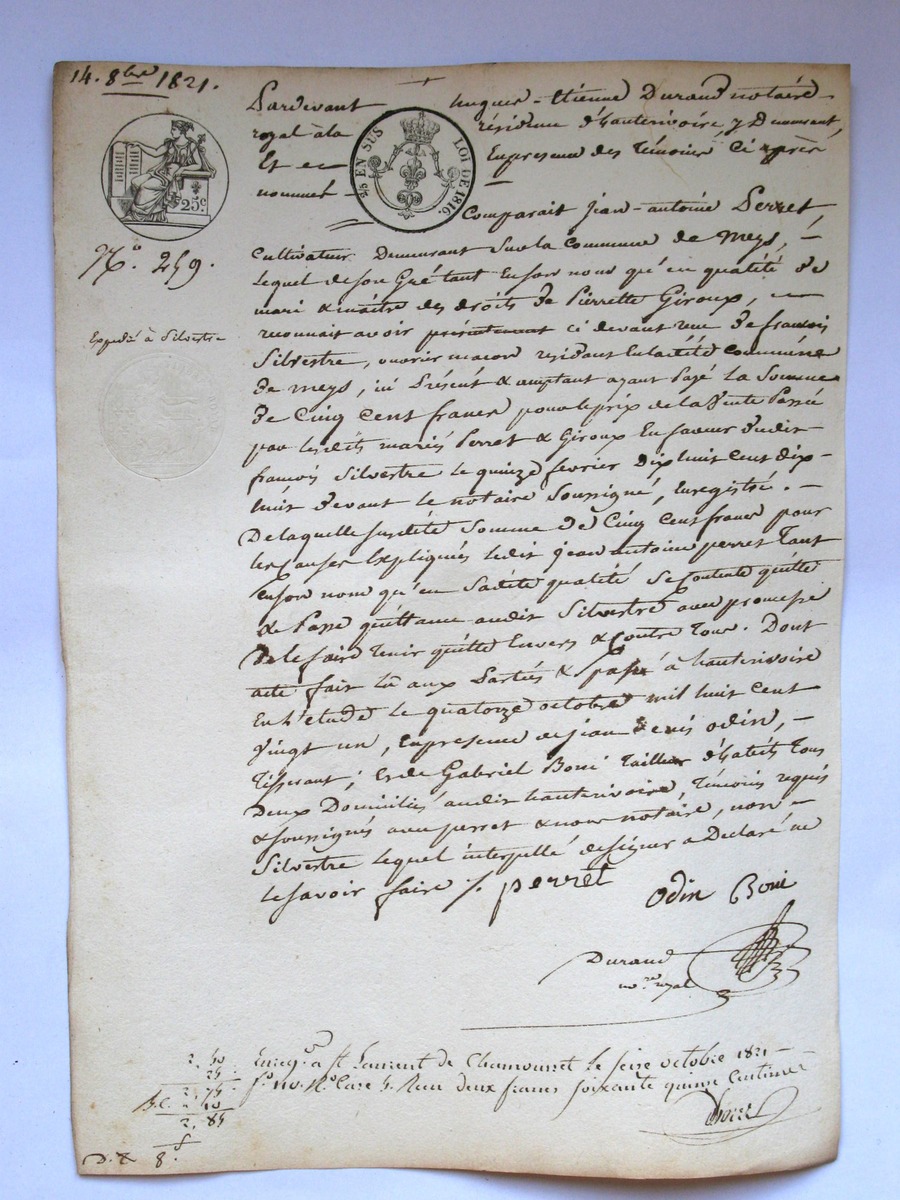 14. 8bre 1821.
Pardevant hugues-Etienne Durand notaire
royal à la résidence d'hauterivoire, y Demeurant,
Et en Enpresence des Témoins Ci après
nommés
25c
2/5 EN SUS LOI DE 1816.
Comparait jean-antoine Perret,
N.o 259.
cultivateur Demeurant Sur la Commune de Meys,
lequel de son Gré tant En son nom qu'en qualité de
mari & maître des droits de Pierrette Giroux,
Expedié à Silvestre
reconnait avoir ci devant recu de francois
Silvestre, ouvrier macon residant En la commune
de meys, ici Présent & acceptant ayant Payé la Somme
de Cinq Cent francs pour le prix de la Vente Passé
par lesdits mariés Perret & Giroux En faveur dudit
francois Silvestre le quinze fevrier Dix huit cent dix-
huit devant le notaire Soussigné, Enregistré. -
De laquelle susdite Somme de Cinq Cent francs pour
les Causes Expliqués ledit jean antoine perret Tant
En son nom qu'en Sadite qualité Se Contente quitte
& Passe quittance audit Silvestre avec promesse
de le faire Tenir quitte Envers & Contre Tous. Dont
acte fait lu aux Parties & passé à hauterivoire
En l'etude le quatorze octobre mil huit cent
Vingt un, En presence de jean denis odin,
Tisserant; Et de Gabriel Boni Tailleur d'habits Tous
Deux Domiciliés audit hauterivoire, Témoins requis
& soussignés avec perret & nous notaire, non
Silvestre lequel interpellé de signer a Declaré ne
le savoir faire ./. perret
Odin Boni
Durand
nore royal
Enreg. à St Laurent de Chamousset le seize octobre 1821
fo 110 Ro Case 5. Recu deux francs soixante quinze Centimes
2, 50
25
2, 75
10
2, 85
8.f